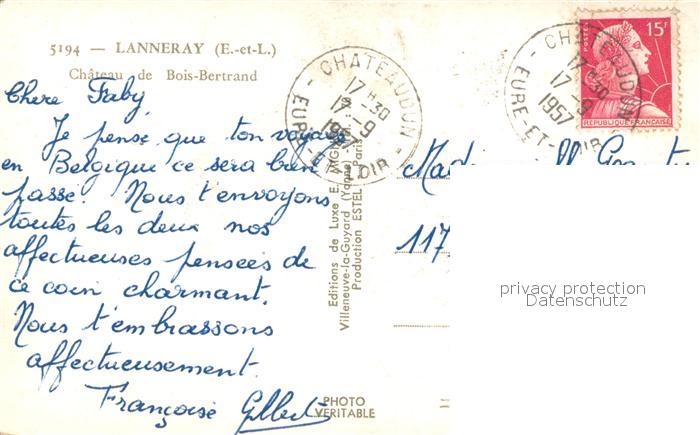 5194 — LANNERAY (E.-et-L.)
Château de Bois-Bertrand
Chere Faby,
Je pense que ton voyage
en Belgique ce sera bien
passé. Nous t'envoyons
toutes les deux nos
affectueuses pensées de
ce coin charmant.
Nous t'embrassons
affectueusement.
Françoise Gilbert
CHATEAUDUN
17 H 30
17 - 9
1957
EURE-ET-LOIR
Editions de Luxe E. MIG
Villeneuve-la-Guyard (Yonne)
Production ESTEL Paris
PHOTO
VERITABLE
CHATEAUDUN
17 H 30
17 - 9
1957
EURE-ET-LOIR
POSTES
15F
REPUBLIQUE FRANÇAISE
117,
privacy protection
Datenschutz